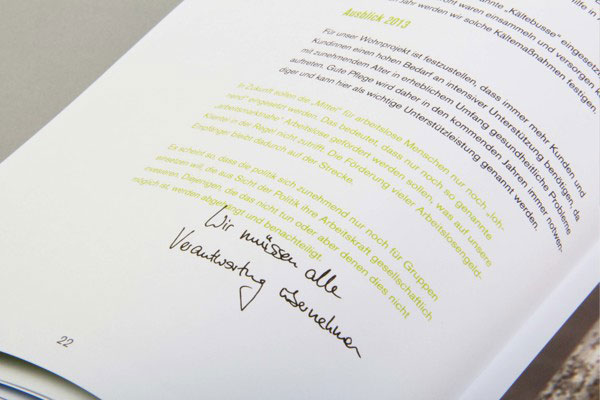 annte „Kältebusse“ eingesetz
waren einsammeln und versorgen k
Jahr werden wir solche Kältemaßnahmen festigen,
Ausblick 2013
Für unser Wohnprojekt ist festzustellen, dass immer mehr Kunden und
Kundinnen einen hohen Bedarf an intensiver Unterstützung benötigen, da
mit zunehmendem Alter in erheblichem Umfang gesundheitliche Probleme
auftreten. Gute Pflege wird daher in den kommenden Jahren immer notwen-
diger und kann hier als wichtige Unterstützleistung genannt werden.
In Zukunft sollen die „Mittel“ für arbeitslose Menschen nur noch „loh-
nend“ eingesetzt werden. Das bedeutet, dass nur noch so genannte
„arbeitsmarktnahe“ Arbeitslose gefördert werden sollen, was auf unsere
Klientel in der Regel nicht zutrifft. Die Förderung vieler Arbeitslosengeld-
Empfänger bleibt dadurch auf der Strecke.
Es scheint so, dass die politik sich zunehmend nur noch für Gruppen
einsetzen will, die aus Sicht der Politik ihre Arbeitskraft gesellschaftlich
investieren. Diejenigen, die das nicht tun oder aber denen dies nicht
möglich ist, werden abgehängt und benachteiligt.
Wir müssen alle
Verantwortung übernehmen
22